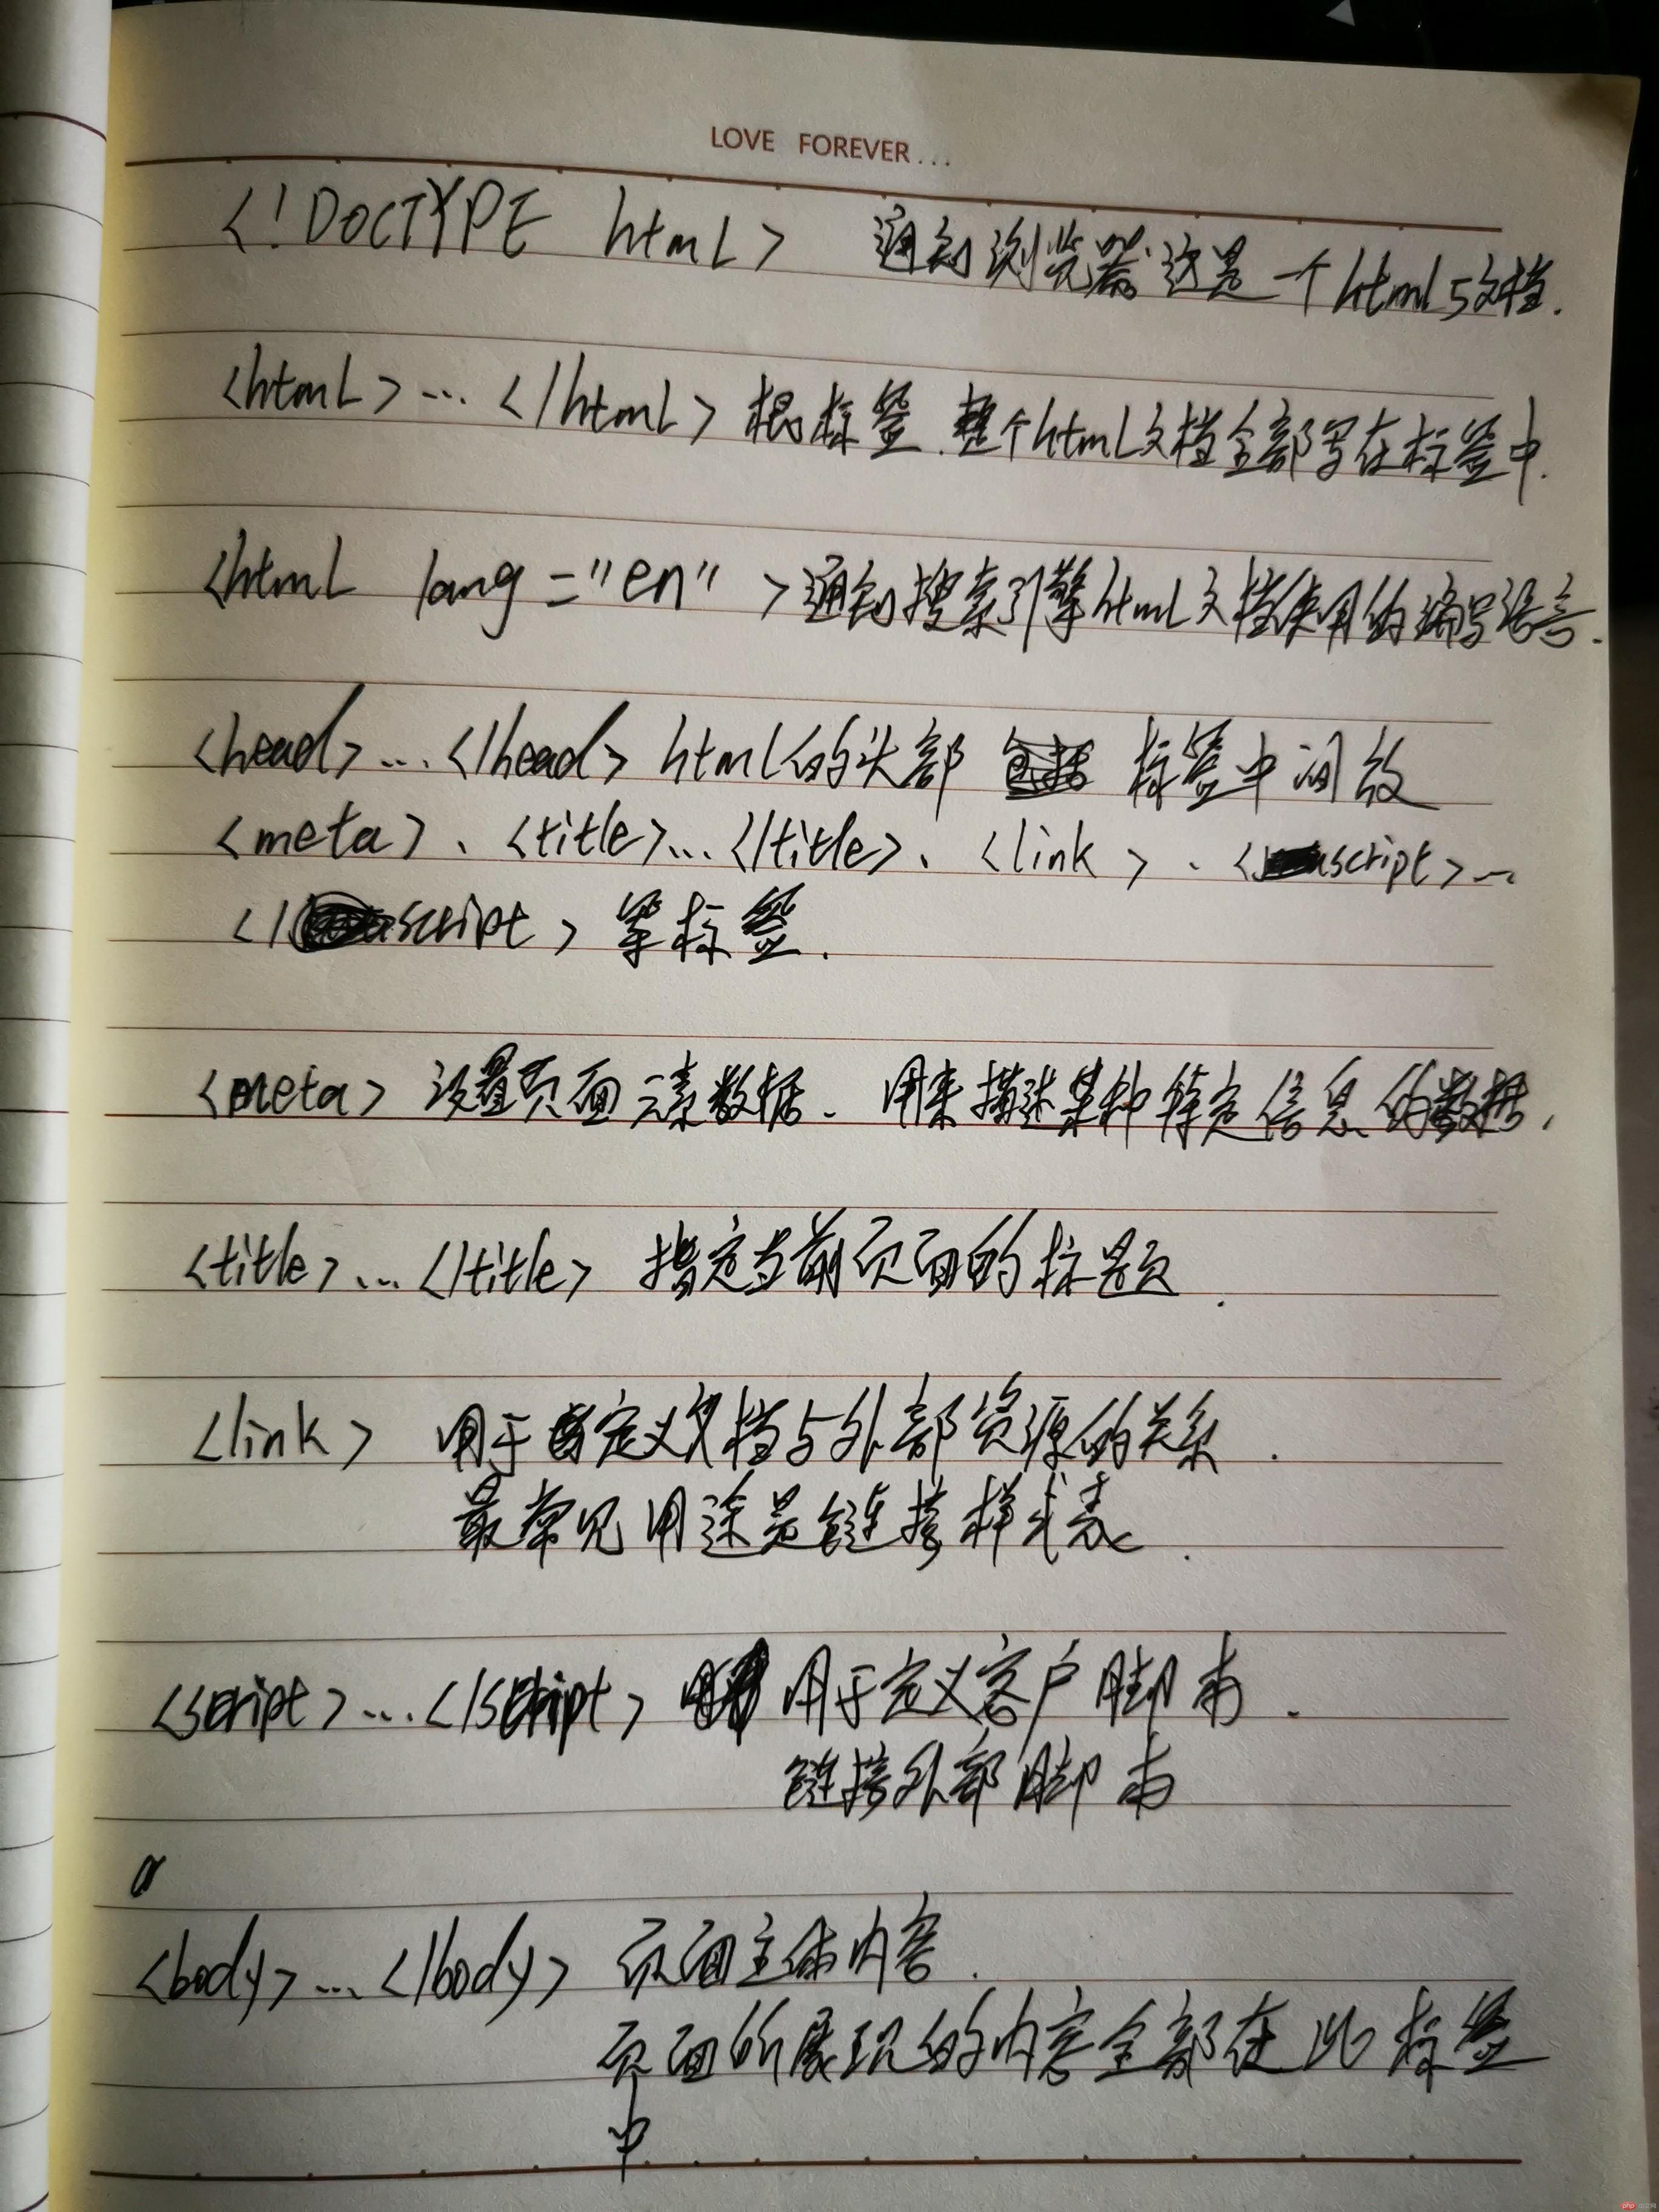 LOVE FOREVER...
<!DOCTYPE html> 通知浏览器这是一个html5文档.
<html>...</html> 根标签.整个html文档全部写在标签中.
<html lang="en">通知搜索引擎html文档使用的编写语言.
<head>...</head> html的头部 标签中间放
<meta>、<title>...</title>、<link>、<script>...
</script>等标签.
<meta> 设置页面元素数据、用来描述某种特定信息的数据.
<title>...</title> 指定当前页面的标题.
<link> 用于定义文档与外部资源的关系.
最常见用途是链接样式表.
<script>...</script> 用于定义客户脚本.
链接外部脚本
<body>...</body> 页面主体内容.
页面所展现的内容全部在此标签
中
php